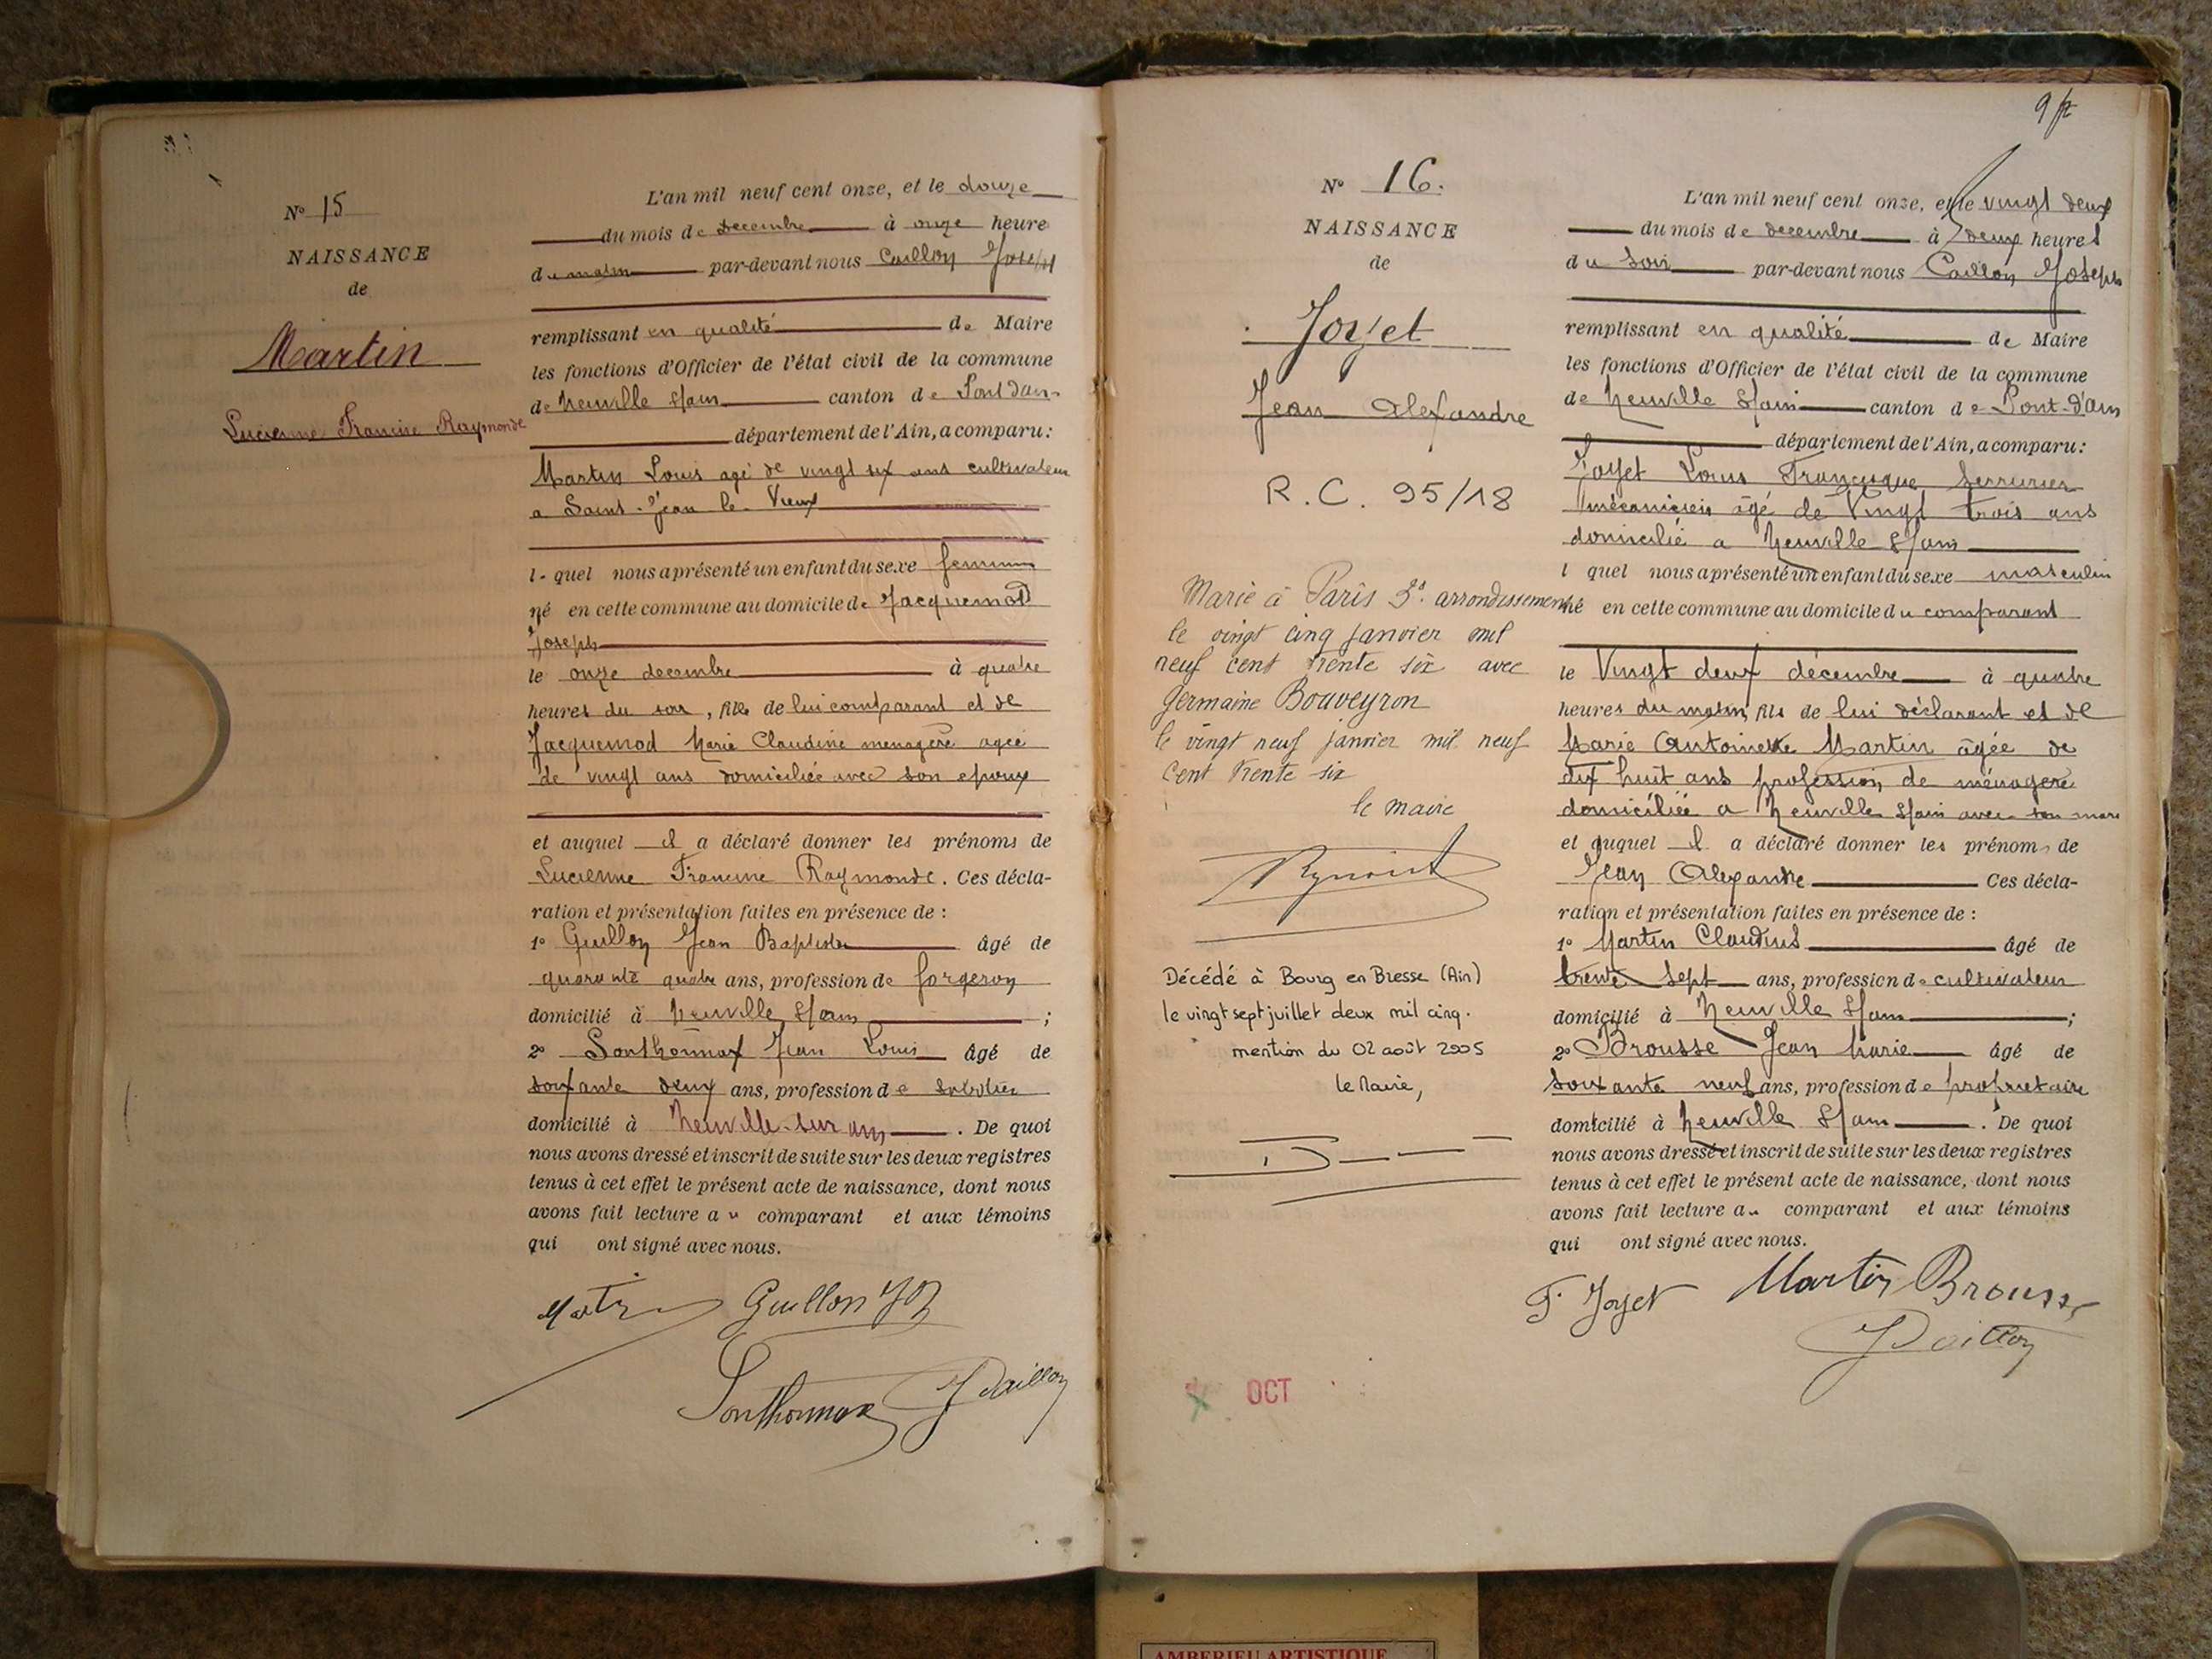 N° 15
NAISSANCE
de
Martin
Lucienne Francine Raymonde
L'an mil neuf cent onze, et le douze
du mois de decembre à onze heure
du matin par-devant nous Caillon Joseph
remplissant en qualité de Maire
les fonctions d'Officier de l'état civil de la commune
de Neuville s/ain canton de Pont d'ain
département de l'Ain, a comparu :
Martin Louis agé de vingt six ans cultivateur
a Saint-Jean-le-Vieux
lequel nous a présenté un enfant du sexe feminin
né en cette commune au domicile de Jacquemod
Joseph
le onze decembre à quatre
heures du soir, fille de lui comparant et de
Jacquemod Marie Claudine menagère agée
de vingt ans domiciliée avec son epoux
et auquel il a déclaré donner les prénoms de
Lucienne Francine Raymonde. Ces décla-
ration et présentation faites en présence de :
1° Guillon Jean Baptiste âgé de
quarante quatre ans, profession de forgeron
domicilié à Neuville s/ain ;
2° Sonthonnax Jean Louis âgé de
soixante deux ans, profession de sabotier
domicilié à Neuville-sur-ain. De quoi
nous avons dressé et inscrit de suite sur les deux registres
tenus à cet effet le présent acte de naissance, dont nous
avons fait lecture au comparant et aux témoins
qui ont signé avec nous.
Martin Guillon JB
Sonthonnax J Caillon
9
N° 16.
NAISSANCE
de
Joyet
Jean Alexandre
R.C. 95/18
Marié à Paris 3e. arrondissement
le vingt cinq janvier mil
neuf cent trente six avec
Germaine Bouveyron
le vingt neuf janvier mil neuf
cent trente six
le maire
Décédé à Bourg en Bresse (Ain)
le vingt sept juillet deux mil cinq.
mention du 02 août 2005
le Maire,
OCT
L'an mil neuf cent onze, et le vingt deux
du mois de decembre à deux heures
du soir par-devant nous Caillon Joseph
remplissant en qualité de Maire
les fonctions d'Officier de l'état civil de la commune
de Neuville s/ain canton de Pont-d'ain
département de l'Ain, a comparu :
Joyet Louis Francisque serrurier
mécanicien âgé de Vingt trois ans
domicilié a Neuville s/ain
l quel nous a présenté un enfant du sexe masculin
né en cette commune au domicile du comparant
le Vingt deux décembre à quatre
heures du matin, fils de lui déclarant et de
Marie Antoinette Martin âgée de
dix huit ans profession de ménagere
domiciliée a Neuville s/ain avec son mari
et auquel il a déclaré donner les prénoms de
Jean Alexandre Ces décla-
ration et présentation faites en présence de :
1° Martin Claudius âgé de
trente sept ans, profession de cultivateur
domicilié à Neuville s/ain ;
2° Brousse Jean Marie âgé de
soixante neuf ans, profession de propriétaire
domicilié à Neuville s/ain. De quoi
nous avons dressé et inscrit de suite sur les deux registres
tenus à cet effet le présent acte de naissance, dont nous
avons fait lecture au comparant et aux témoins
qui ont signé avec nous.
F. Joyet Martin Brousse
J Caillon
AMBERIEU ARTISTIQUE